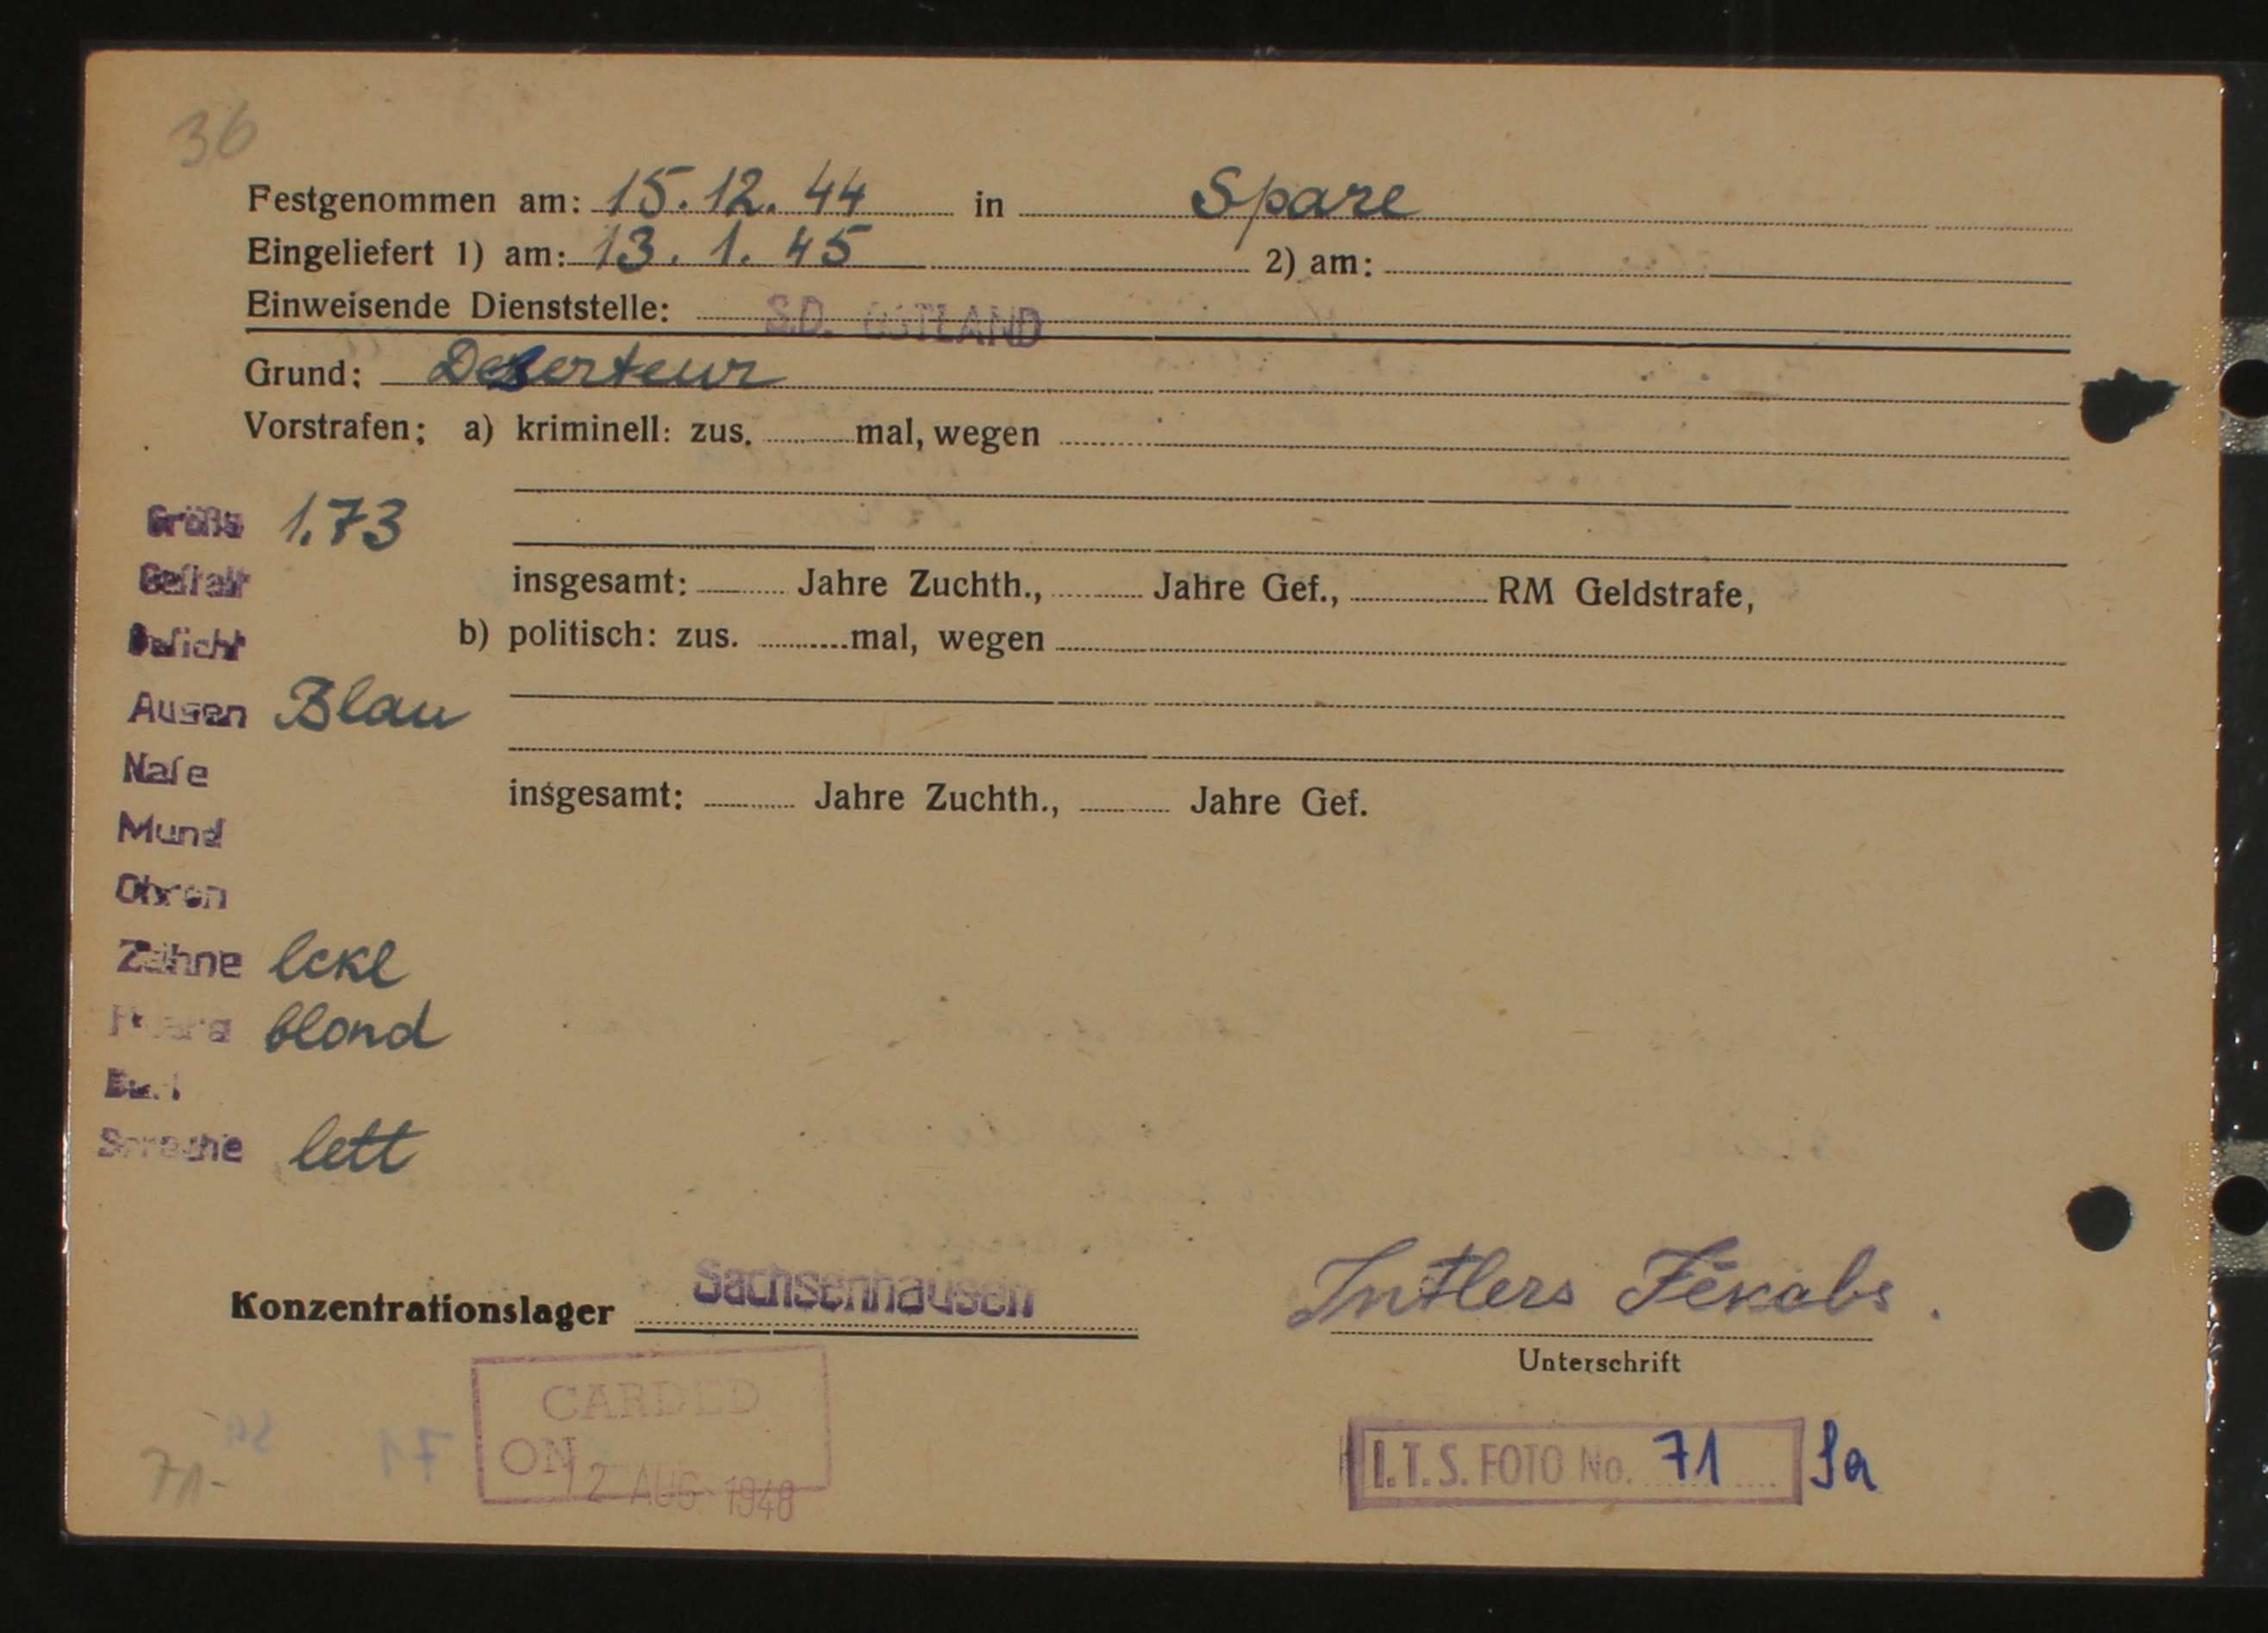 36
Festgenommen am: 15.12.44 in Spare
Eingeliefert 1) am: 13.1.45 2) am:
Einweisende Dienststelle: S.D. OSTLAND
Grund: Deserteur
Vorstrafen: a) kriminell: zus. mal, wegen
Größe 1,73
Gestalt
insgesamt: Jahre Zuchth., Jahre Gef., RM Geldstrafe,
Gesicht
b) politisch: zus. mal, wegen
Augen Blau
Nase
insgesamt: Jahre Zuchth., Jahre Gef.
Mund
Ohren
Zähne lckl
Haare blond
Bart
Sprache lett
Konzentrationslager Sachsenhausen
Intlers Jēkabs.
Unterschrift
CARDED
ON 12 AUG 1948
71-
I.T.S. FOTO No. 71 Sa